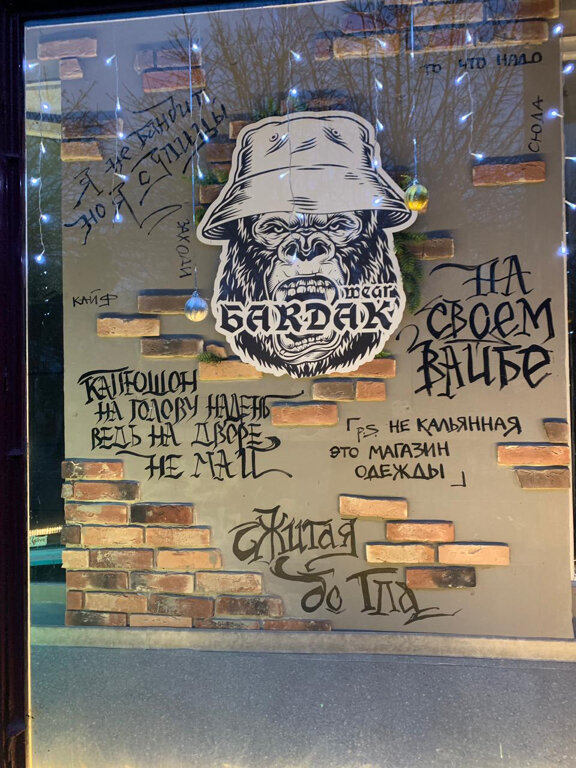 то что надо
Я не бандит
но я с улицы
сюда
заходи
кайф
wear
БАRDАК
НА
СВОЕМ
ВАЙБЕ
КАПЮШОН
НА ГОЛОВУ НАДЕНЬ
ВЕДЬ НА ДВОРЕ
НЕ МАЙ
P.S. НЕ КАЛЬЯННАЯ
ЭТО МАГАЗИН
ОДЕЖДЫ
Жизая